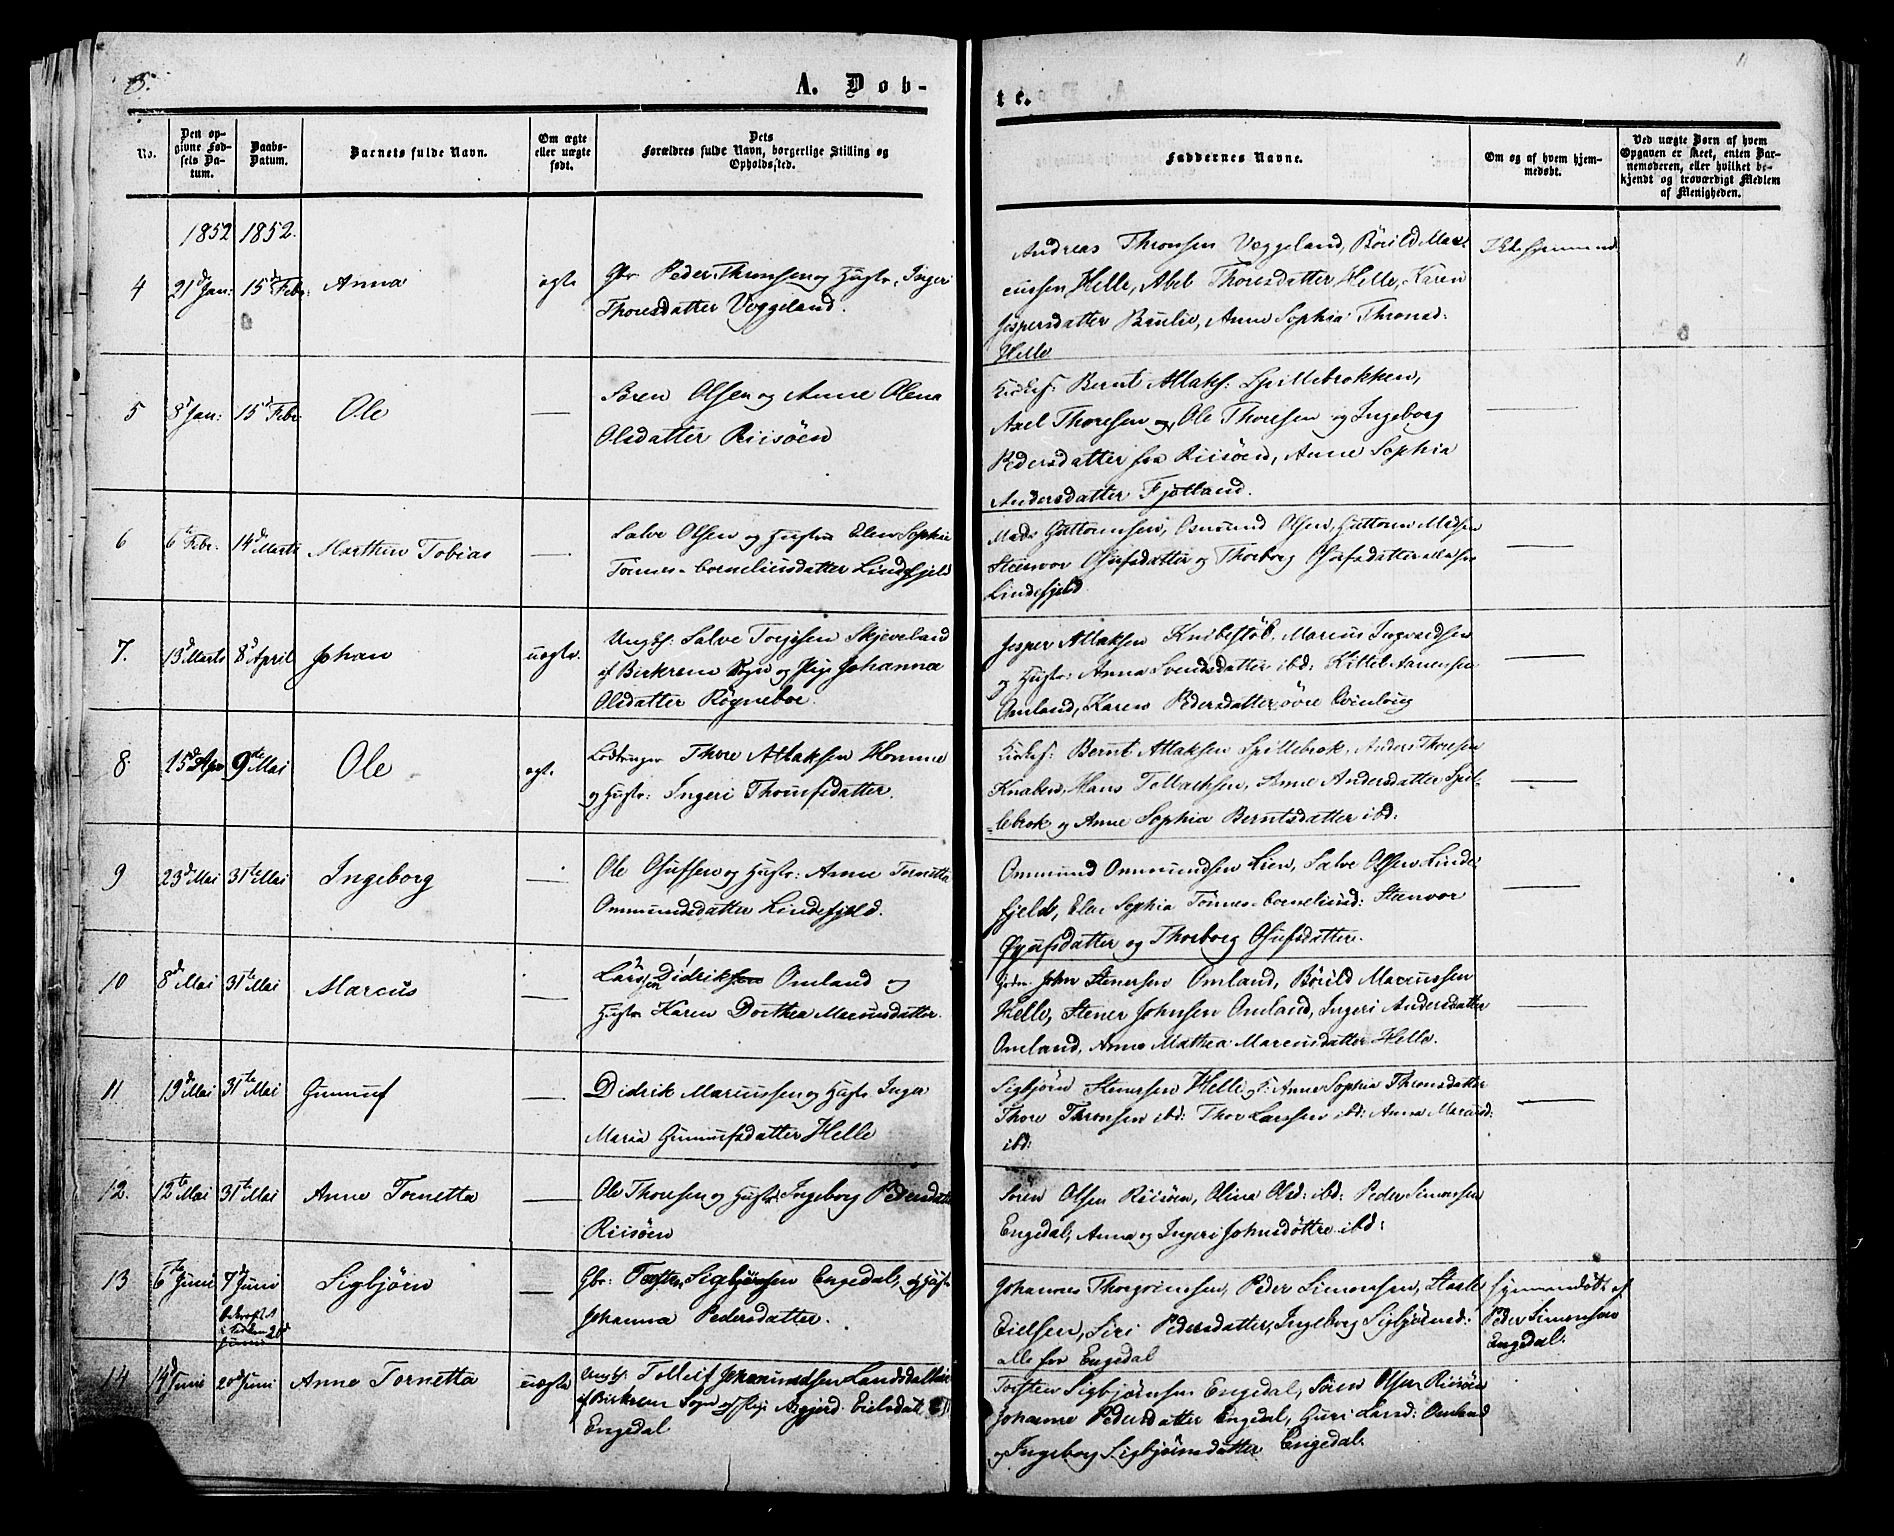 5.
A. Døb-
te.
No.
Den op-
givne Fød-
sels Da-
tum.
Daabs-
Datum.
Barnets fulde Navn.
Om ægte
eller uægte
født.
Dets
Forældres fulde Navn, borgerlige Stilling og
Opholdssted.
Faddernes Navne.
Om og af hvem hjem-
medøbt.
Ved uægte Børn af hvem
Opgaven er skeet, enten Bar-
nemoderen, eller hvilket be-
kjendt og troværdigt Medlem
af Menigheden.
1852 1852.
4 21d Jan: 15d Febr: Anna ægte
Gbr. Peder Thronsen og Hustr. Ingeri
Thoresdatter Veggeland.
Andreas Thronsen Veggeland, Børild Marc
cussen Helle, Abel Thoresdatter Helle, Karen
Jespersdatter Brulie, Anne Sophia Thronsd:
Helle
5 8d Jan: 15d Febr Ole —
Søren Olsen og Anne Olena
Olsdatter Riisöen
Kirkes: Bernt Atlaks: Spillebrokken,
Axel Thoresen og Ole Thoresen og Ingeborg
Pedersdatter fra Riisöen, Anne Sophia
Andersdatter Fjotland.
6 6te Febr. 14d Marts Marthin Tobias —
Salve Olsen og Hustru Elen Sophia
Tönnes-Corneliusdatter Lindefjeld
Mads Guttormsen, Osmund Olsen, Guttorm Madsen
Steenvor Osufsdatter og Thorborg Osufsdatter alle fra
Lindefjeld
7. 13d Marts 8d April Johan uægte.
Ungk: Salve Torjesen Skjeveland
af Birkrem Sogn og Pige Johanna
Olsdatter Rögneboe.
Jesper Atlaksen Knibestöl, Marcus Ingvaldsen
og Hustr: Anna Svendsdatter ibd: Kittel Aanensen
Omland, Karen Pedersdatter övre Qvinlóug
8 15d Apr 9te Mai Ole ægt.
Thore Atlaksen Homme
og Hustr: Ingeri Thomfsdatter.
Kirkes: Bernt Atlaksen Spillebrok, Anders Thoresen
Knaben, Hans Tollaksen, Anne Andersdatter Spil-
lebrok og Anne Sophia Berntsdatter ibd:
9 23d Mai 31te Mai Ingeborg —
Ole Osufsen og Hustr: Anne Tornetta
Ommundsdatter Lindefjeld.
Ommund Ommundsen Lien, Salve Olsen Linde
fjeld, Elen Sophia Tönnes-Corneliusd: Steenvor
Osufsdatter og Thorborg Osufsdatter.
10 8d Mai 31te Mai Marcus —
Lars Didriksen Omland og
Hustr Karen Dorthea Marcusdatter.
John Stenersen Omland, Börild Marcussen
Helle, Stener Johnsen Omland, Ingeri Andersdatter
Omland, Anne Mathea Marcusdatter Helle.
11 19d Mai 31te Mai Gunuf —
Didrik Marcussen og Hustr Inger
Maria Gunnufsdatter Helle
Sigbjörn Stenersen Helle og Anne Sophia Thronsdatter
Thore Thronsen ibd: Thor Larssen ibd: Anna Marcusd:
ibd:
12. 12te Mai 31te Mai Anne Tornetta —
Ole Thoresen og Hustr: Ingeborg Pedersdatter
Riisöen
Sören Olsen Riisöen, Olina Olsd: ibd: Peder Simonsen
Engedal, Anna og Ingeri Johnsdøttre ibd:
13 6te Juni 7d Juni Sigbjörn —
Gbr: Torsten Sigbjörnsen Engedal, og Hustr
Johanna Pedersdatter.
Johannes Thorgrimsen, Peder Simonsen, Staale
Eielsen, Siri Pedersdatter, Ingeborg Sigbjörnsd:
alle fra Engedal
Hjemmedöbt af
Peder Simonsen
Engedal.
14 14d Juni 20d Juni Anne Tornetta uægte
Ungk: Tolleif Johannessen Landsdal
af Birkrem Sogn og Pige Asgjerd Eielsdat.
Engedal
Torsten Sigbjörnsen Engedal, Sören Olsen Riisöen
Johanne Pedersdatter Engedal, Guri Larsd: Omland
og Ingeborg Sigbjörnsdatter Engedal.